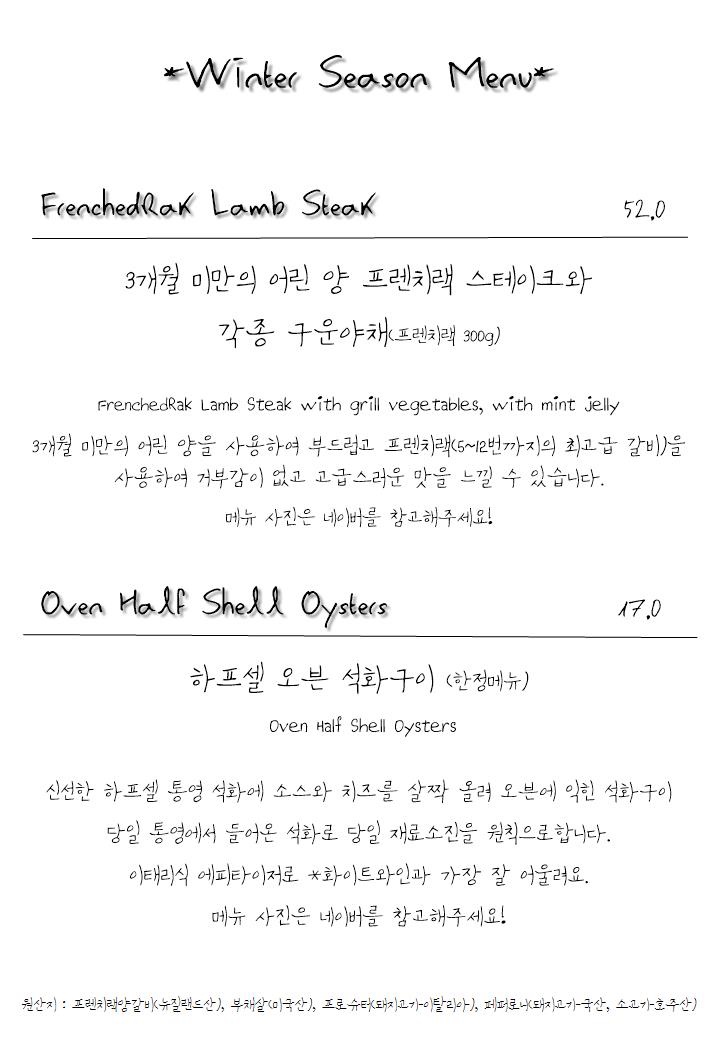 *Winter Season Menu*
FrenchedRaK Lamb SteaK 52.0
3개월 미만의 어린 양 프렌치랙 스테이크와
각종 구운야채(프렌치랙 300g)
FrenchedRak Lamb Steak with grill vegetables, with mint jelly
3개월 미만의 어린 양을 사용하여 부드럽고 프렌치랙(5~12번까지의 최고급 갈비)을
사용하여 거부감이 없고 고급스러운 맛을 느낄 수 있습니다.
메뉴 사진은 네이버를 참고해주세요!
Oven Half Shell Oysters 17.0
하프셀 오븐 석화구이 (한정메뉴)
Oven Half Shell Oysters
신선한 하프셀 통영 석화에 소스와 치즈를 살짝 올려 오븐에 익힌 석화구이
당일 통영에서 들어온 석화로 당일 재료소진을 원칙으로합니다.
이태리식 에피타이저로 *화이트와인과 가장 잘 어울려요.
메뉴 사진은 네이버를 참고해주세요!
원산지 : 프렌치랙양갈비(뉴질랜드산), 부채살(미국산), 프로슈터(돼지고기-이탈리아), 페퍼로니(돼지고기-국산, 소고기-호주산)